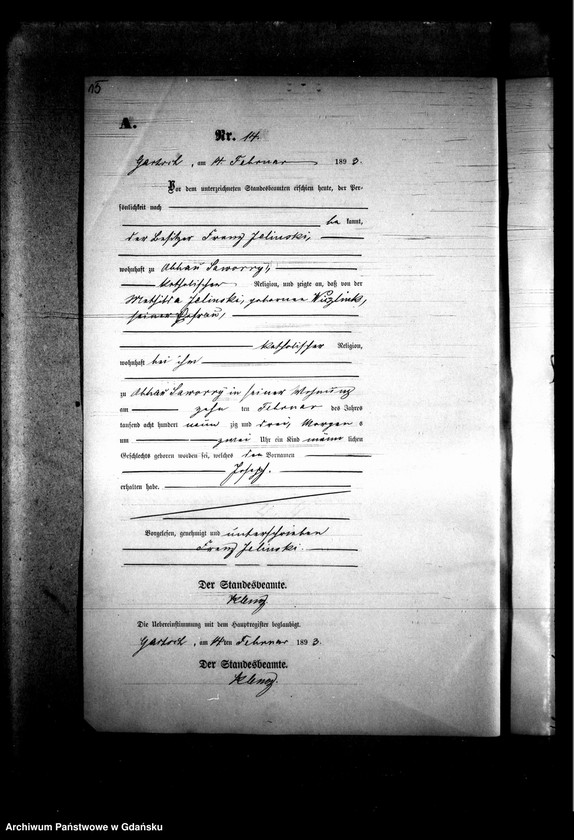 15
A.
Nr. 14
am 14 Februar 1893.
Vor dem unterzeichneten Standesbeamten erschien heute, der Per-
sönlichkeit nach
be kannt,
der Besitzer Franz Jelinski,
wohnhaft zu Abbau
katholischer Religion, und zeigte an, daß von der
Mathilde Jelinski, geborenen
seiner Ehefrau,
katholischer Religion,
wohnhaft bei ihm
zu Abbau in seiner Wohnung
am zehn ten Februar des Jahres
tausend acht hundert neun zig und drei, Morgens
um zwei Uhr ein Kind männ lichen
Geschlechts geboren worden sei, welches den Vornamen
Joseph.
erhalten habe.
Vorgelesen, genehmigt und unterschrieben
Franz Jelinski.
Der Standesbeamte.
Die Uebereinstimmung mit dem Hauptregister beglaubigt.
am 14ten Februar 1893.
Der Standesbeamte.
Archiwum Państwowe w Gdańsku